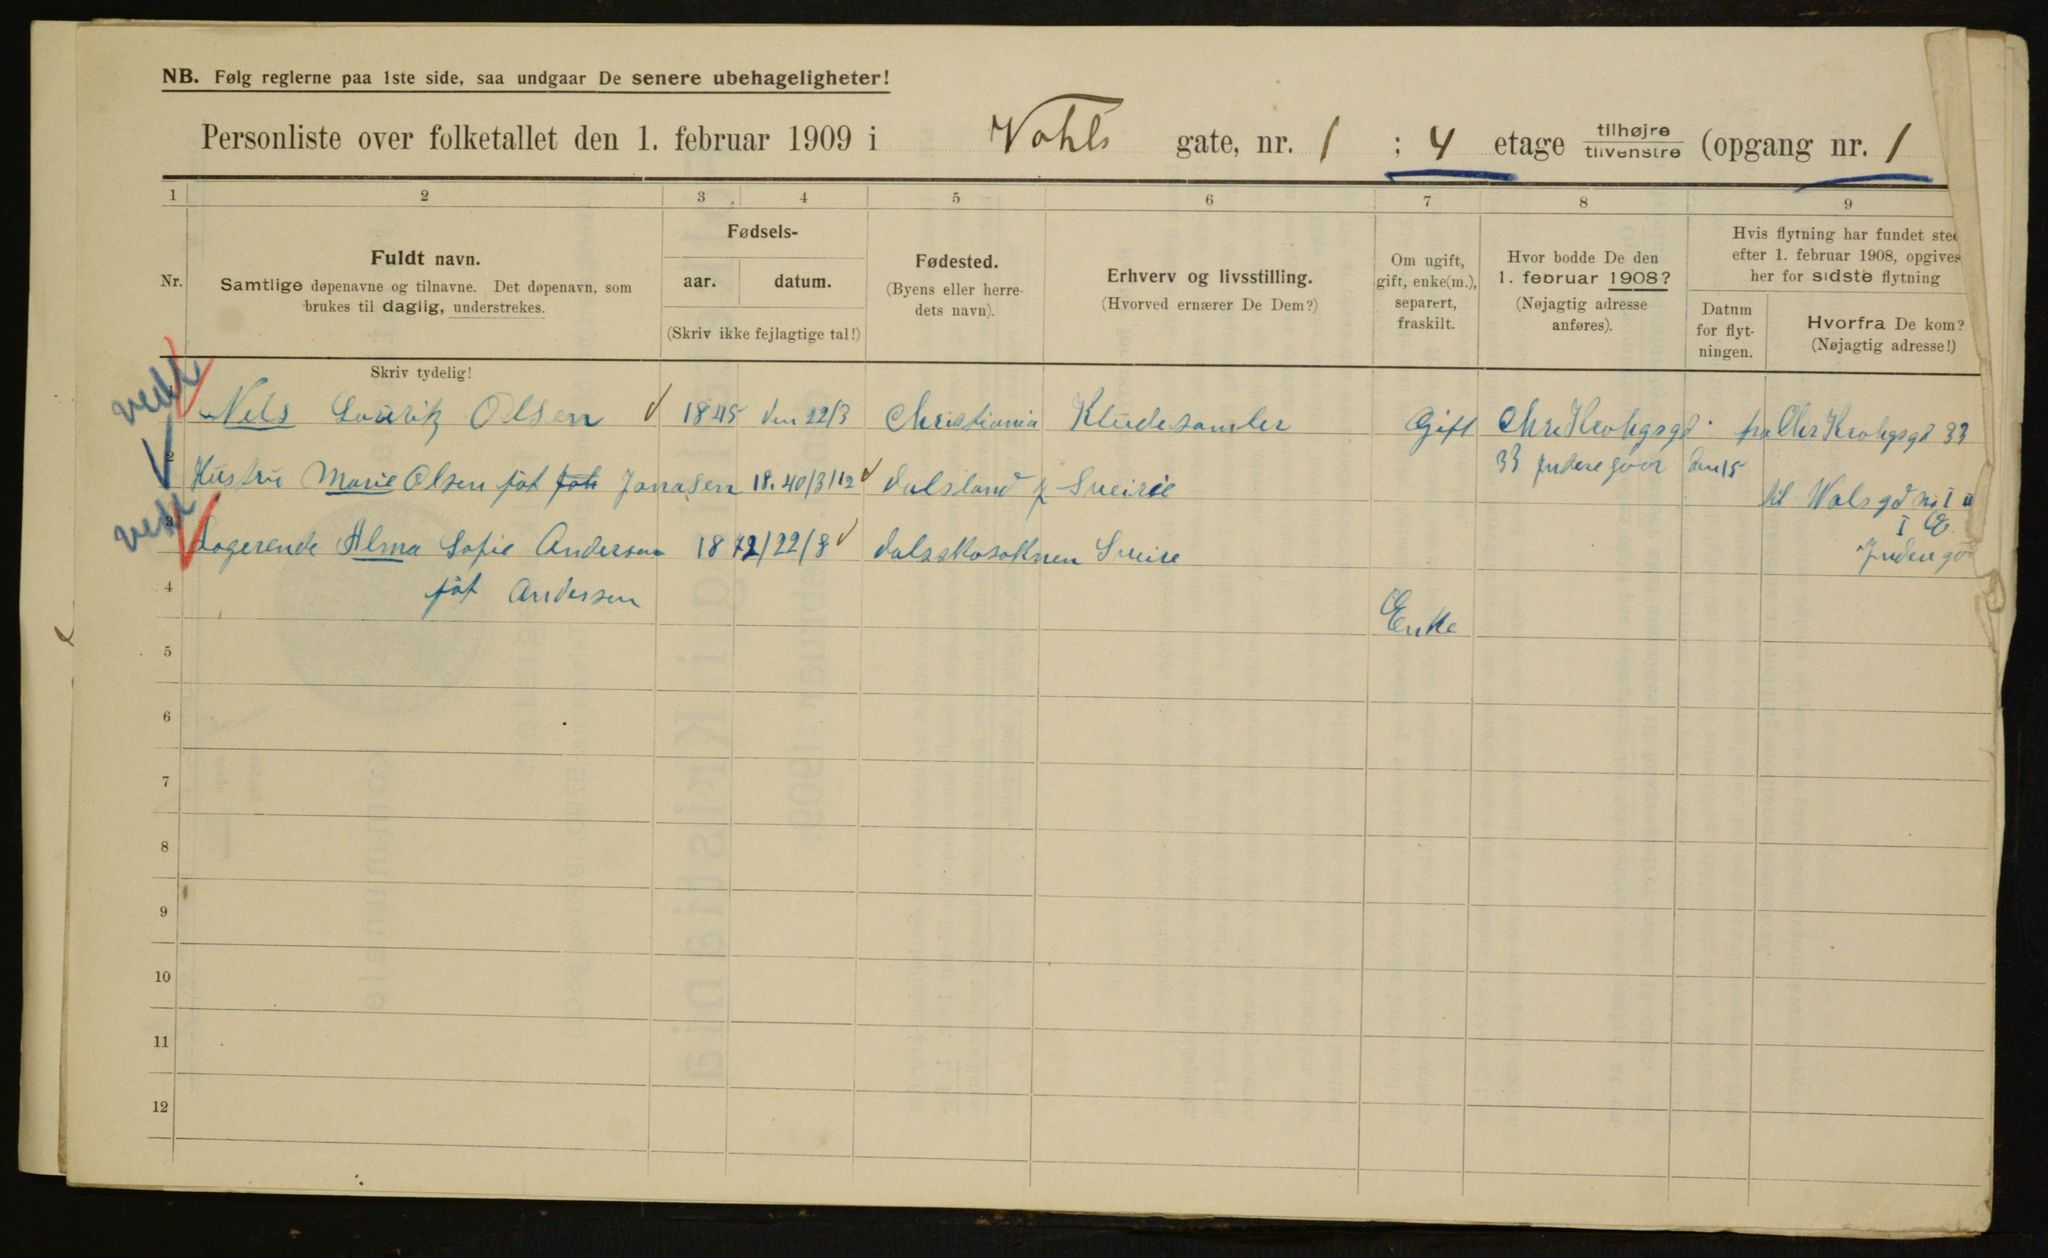 NB. Følg reglerne paa 1ste side, saa undgaar De senere ubehageligheter!
Personliste over folketallet den 1. februar 1909 i Vahls gate, nr. 1 ; 4 etage tilhøjre tilvenstre (opgang nr. 1
1 2 3 4 5 6 7 8 9
Nr.
Fuldt navn.
Samtlige døpenavne og tilnavne. Det døpenavn, som
brukes til daglig, understrekes.
Fødsels-
aar. datum.
(Skriv ikke fejlagtige tal!)
Fødested.
(Byens eller herre-
dets navn).
Erhverv og livsstilling.
(Hvorved ernærer De Dem?)
Om ugift,
gift, enke(m.),
separert,
fraskilt.
Hvor bodde De den
1. februar 1908?
(Nøjagtig adresse
anføres).
Hvis flytning har fundet sted
efter 1. februar 1908, opgives
her for sidste flytning
Datum
for flyt-
ningen.
Hvorfra De kom?
(Nøjagtig adresse!)
Skriv tydelig!
1 Nils Lauritz Olsen 1845 den 22/3 Christiania Kludesamler Gift Chr Krohgsgd. fra Chr Krohgsgd 33
33 indre goor den 15
2 Hustru Marie Olsenføt Jonasen 18.40/3/12 dalsland Sveirie
til Walsgd no I
I E
3 Logerende Alma Sofie Andersen 1872/22/8 dalsskosoknen Sveire
Indre
4 føt Andersen
Enke
5
6
7
8
9
10
11
12